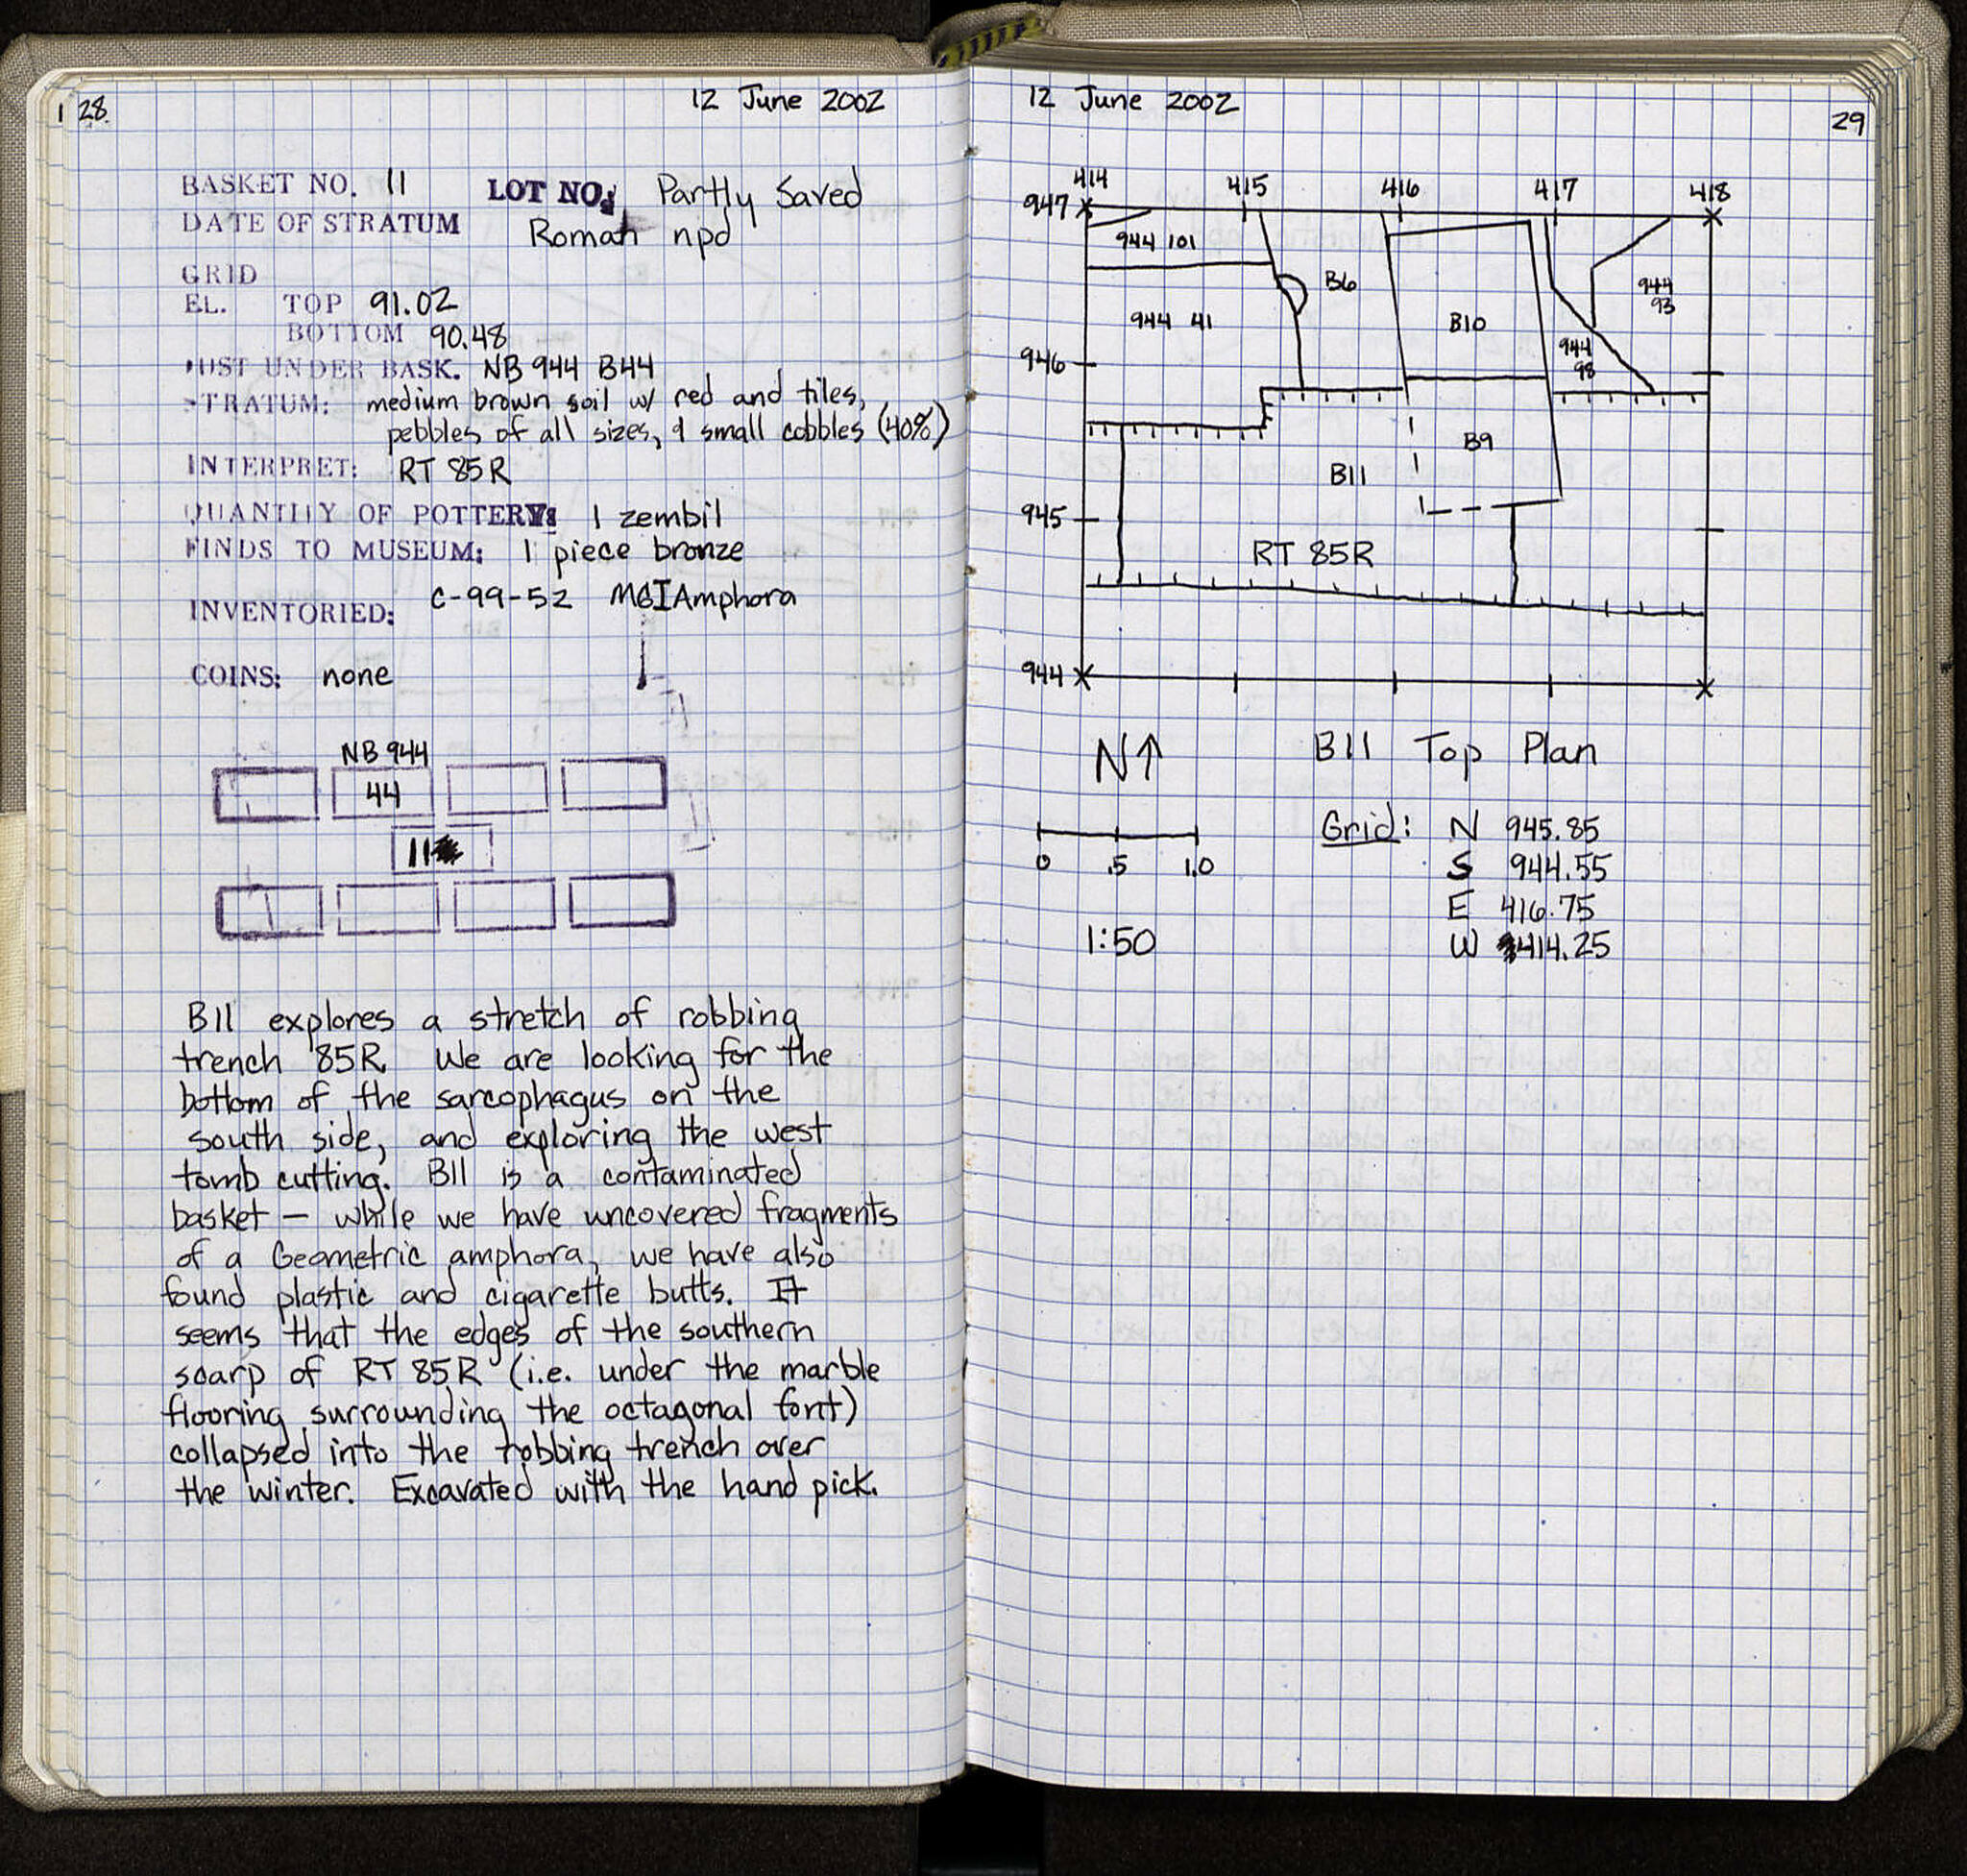 28
12 June 2002
BASKET NO. 11 LOT NO: Partly Saved
DATE OF STRATUM Roman npd
GRID
EL. TOP 91.02
BOTTOM 90.48
JUST UNDER BASK. NB 944 B44
STRATUM: medium brown soil w/ red and tiles,
pebbles of all sizes, & small cobbles (40%)
INTERPRET: RT 85R
QUANTITY OF POTTERY: 1 zembil
FINDS TO MUSEUM: 1 piece bronze
INVENTORIED: C-99-52 MGI Amphora
COINS: none
NB 944
44
11
B11 explores a stretch of robbing
trench 85R. We are looking for the
bottom of the sarcophagus on the
south side, and exploring the west
tomb cutting. B11 is a contaminated
basket – while we have uncovered fragments
of a Geometric amphora, we have also
found plastic and cigarette butts. It
seems that the edges of the southern
scarp of RT 85R (i.e. under the marble
flooring surrounding the octagonal font)
collapsed into the robbing trench over
the winter. Excavated with the hand pick.
12 June 2002
29
414 415 416 417 418
947
944 101
B6
944
93
944 41
B10
944
98
946
B9
B11
945
RT 85R
944
N↑
B11 Top Plan
0 .5 1.0
1:50
Grid: N 945.85
S 944.55
E 416.75
W 414.25